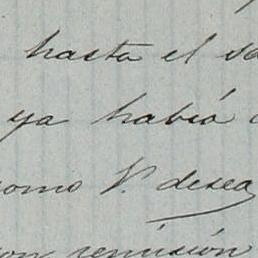 hasta el
ya había
como V. desea
con remisión